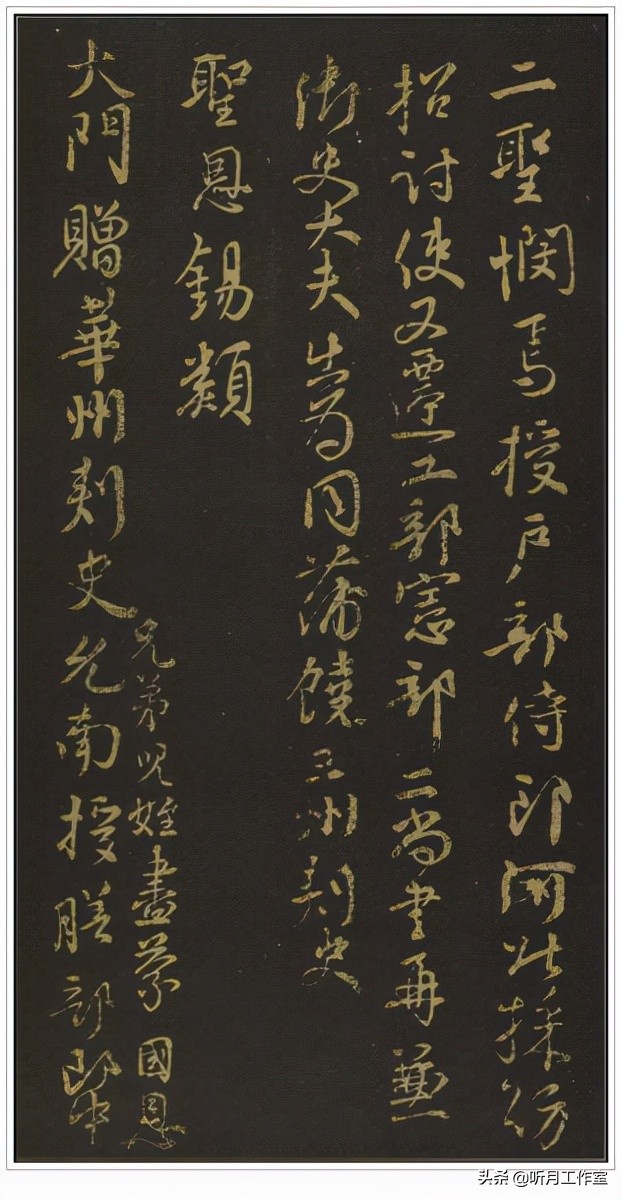 二聖憫焉授戶部侍郎河北採訪
招討使又遷工部憲部二尚書再兼
御史大夫出為同蒲饒三州刺史
聖恩錫類
兄弟兒姪盡蒙國恩
大門贈華州刺史允南授膳部郎中
头条 @听月工作室